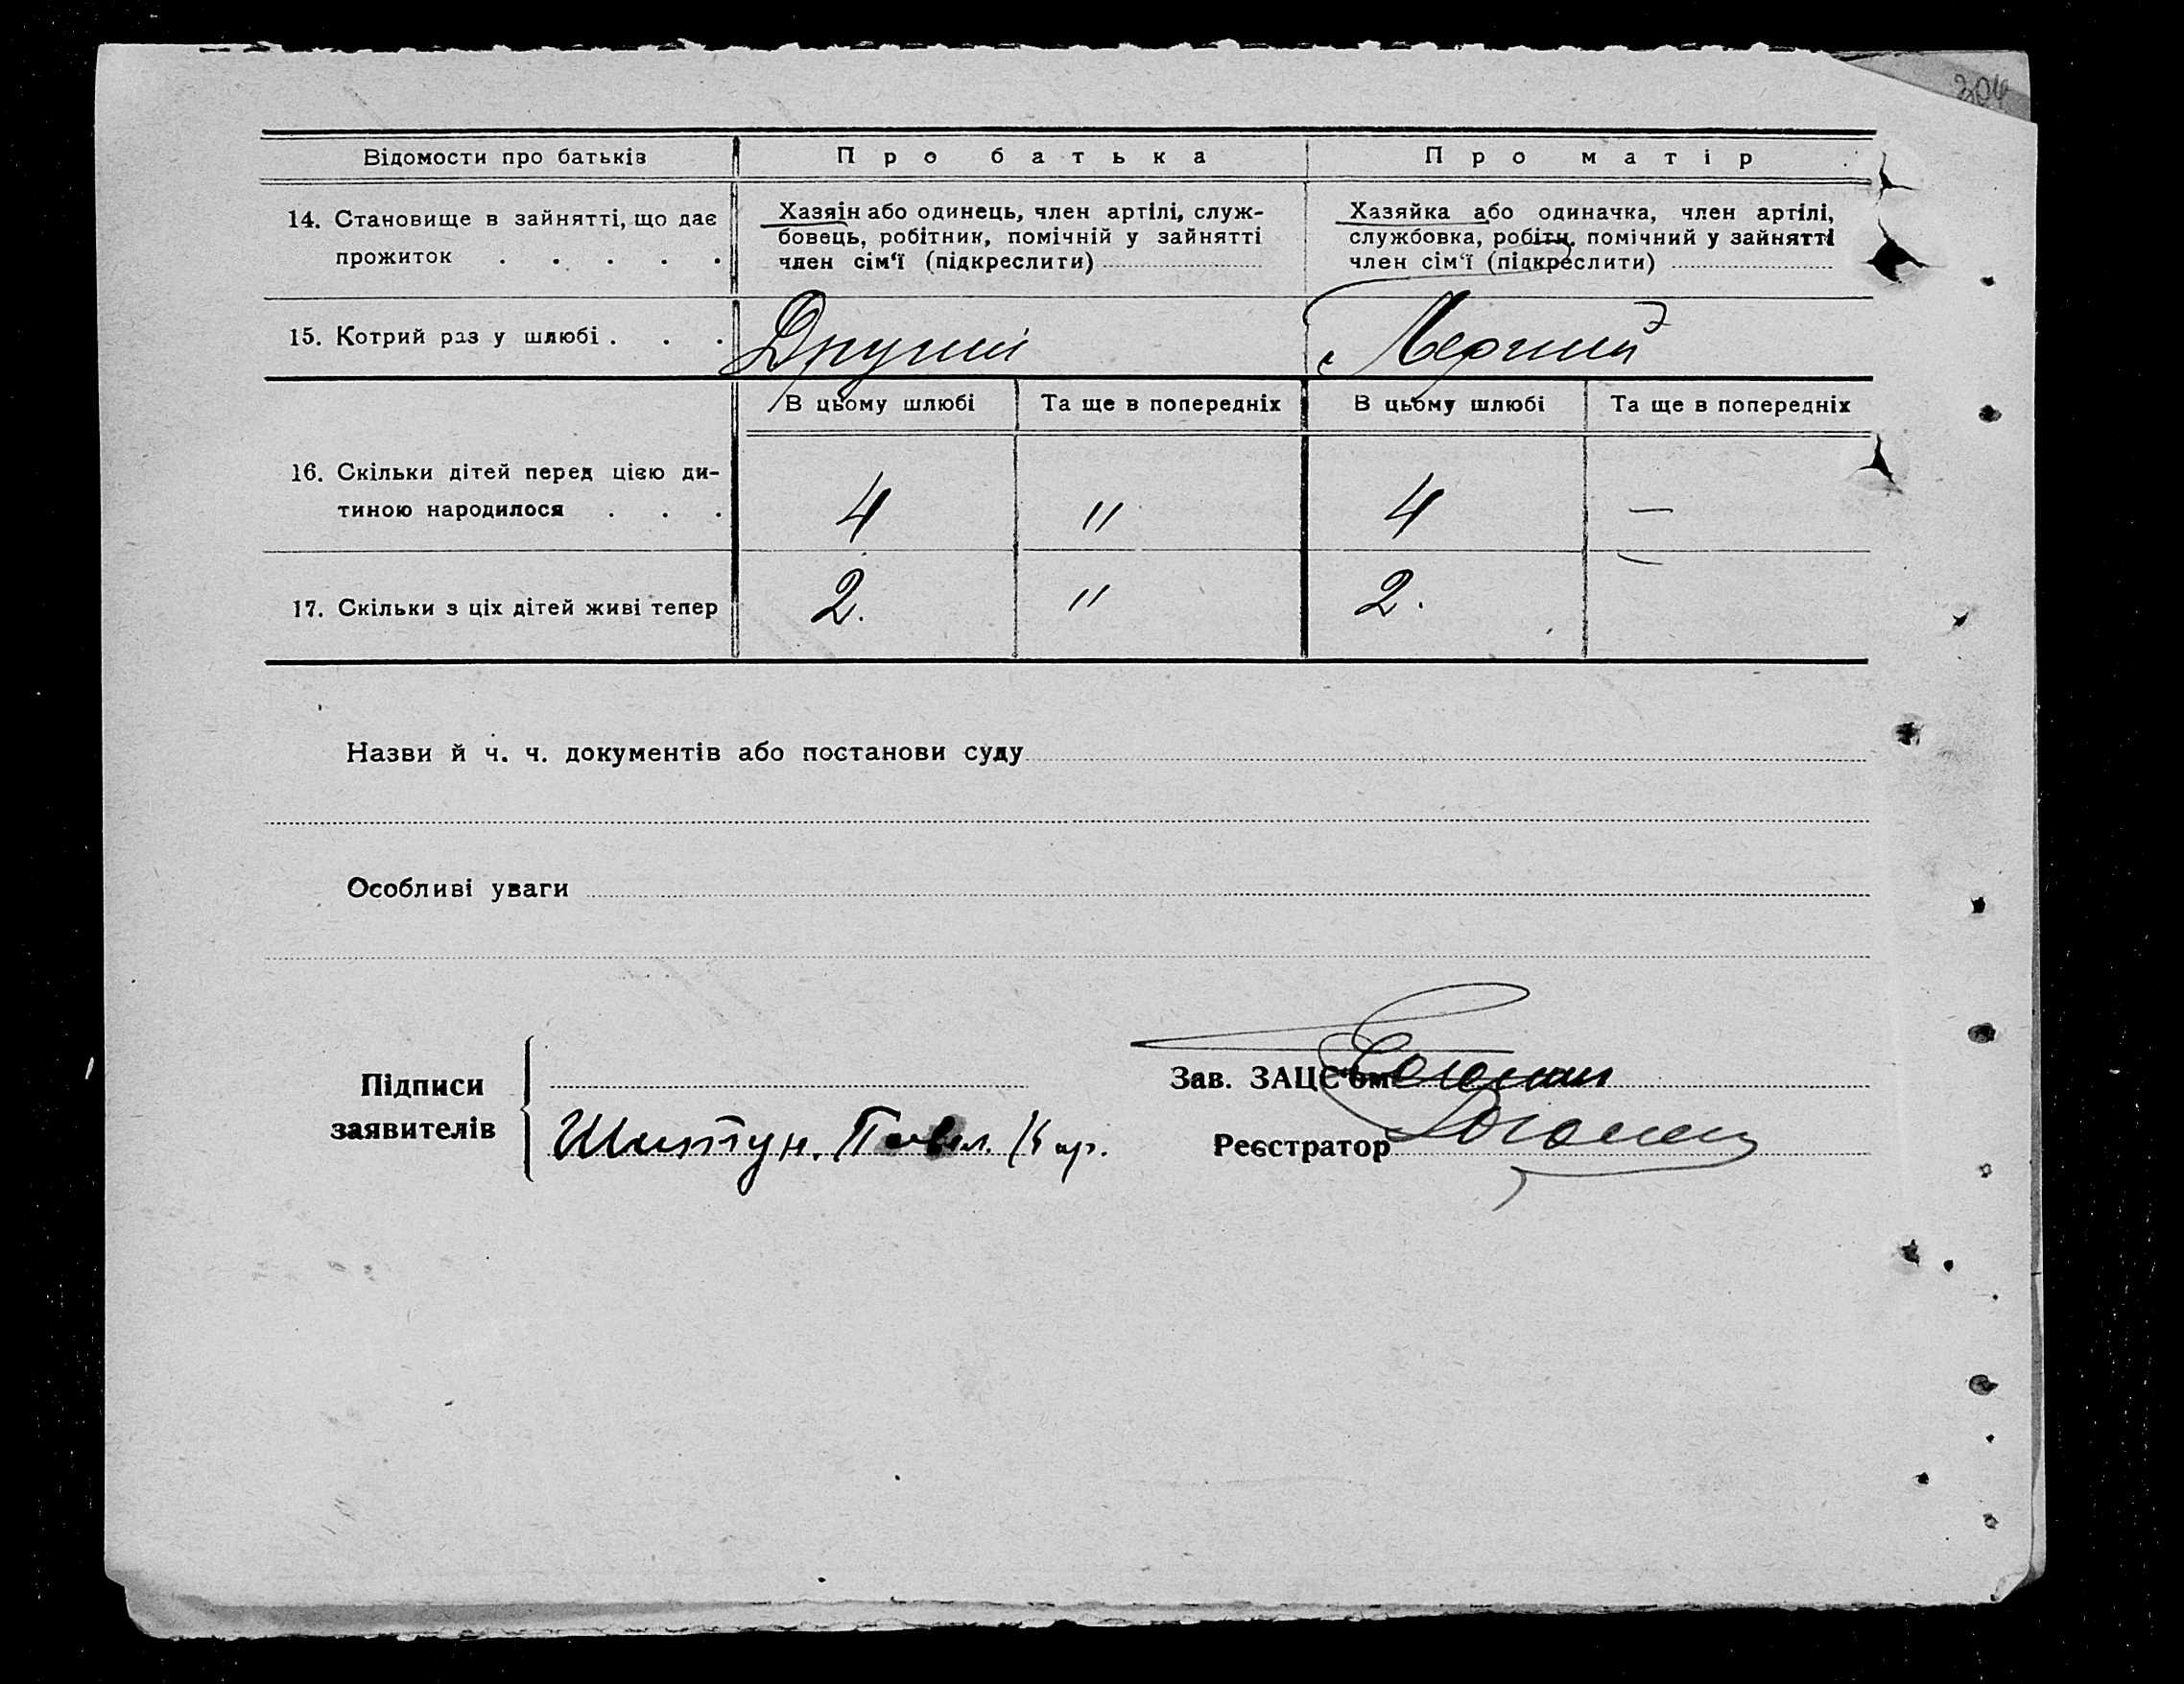 304
Відомости про батьків
Про батька
Про матір
14. Становище в зайнятті, що дає
прожиток . . . . .
Хазяїн або одинець, член артілі, служ-
бовець, робітник, помічній у зайнятті
член сім'ї (підкреслити)
Хазяйка або одиначка, член артілі,
службовка, робітн. помічний у зайнятті
член сім'ї (підкреслити)
15. Котрий раз у шлюбі . . .
Другий
Перший
В цьому шлюбі
Та ще в попередніх
В цьому шлюбі
Та ще в попередніх
16. Скільки дітей перед цією ди-
тиною народилося . . .
4 " 4 —
17. Скільки з ціх дітей живі тепер
2. " 2.
Назви й ч. ч. документів або постанови суду
Особливі уваги
Підписи
заявителів
Павел. Кар.
Зав. ЗАЦС'ом
Реєстратор